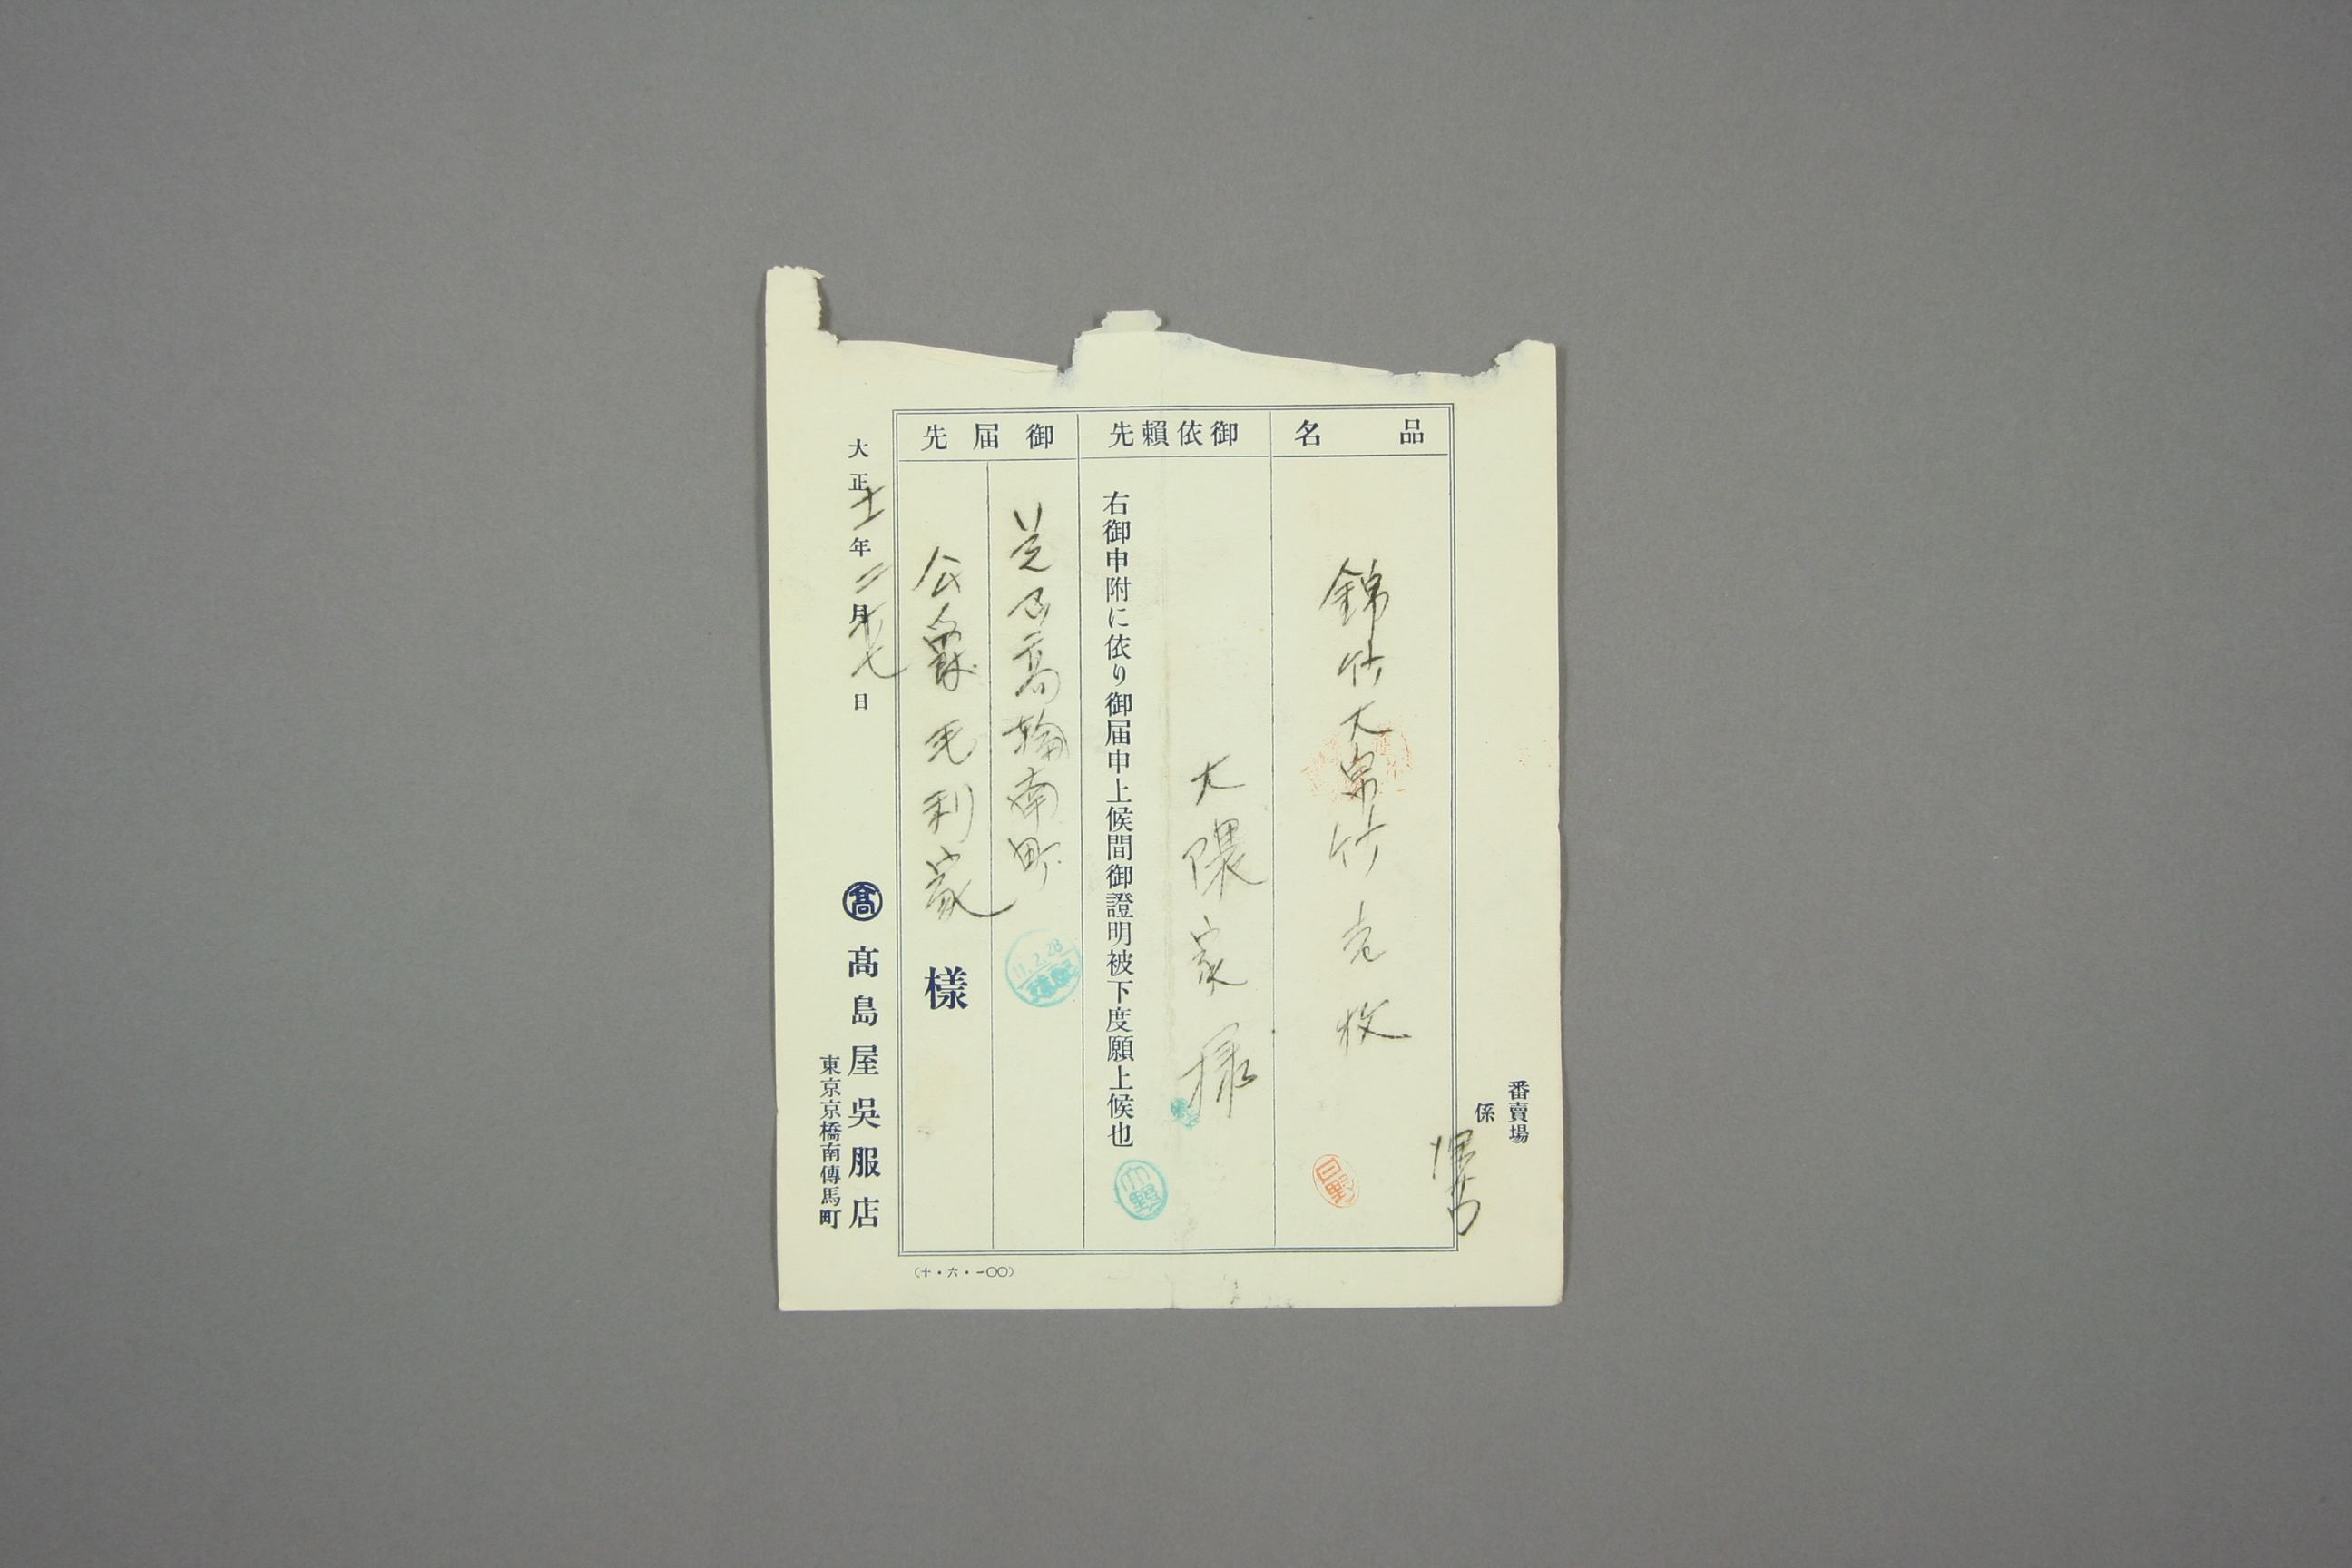 番賣場
係
品名
錦竹大帛竹壱枚
御依頼先
大隈家様
右御申附に依り御届申上候間御證明被下度願上候也
御届先
芝区高輪南町
公爵毛利家様
大正十一年二月廿七日
髙
髙島屋呉服店
東京京橋南傳馬町
(十・六・一〇〇)
11.2.28